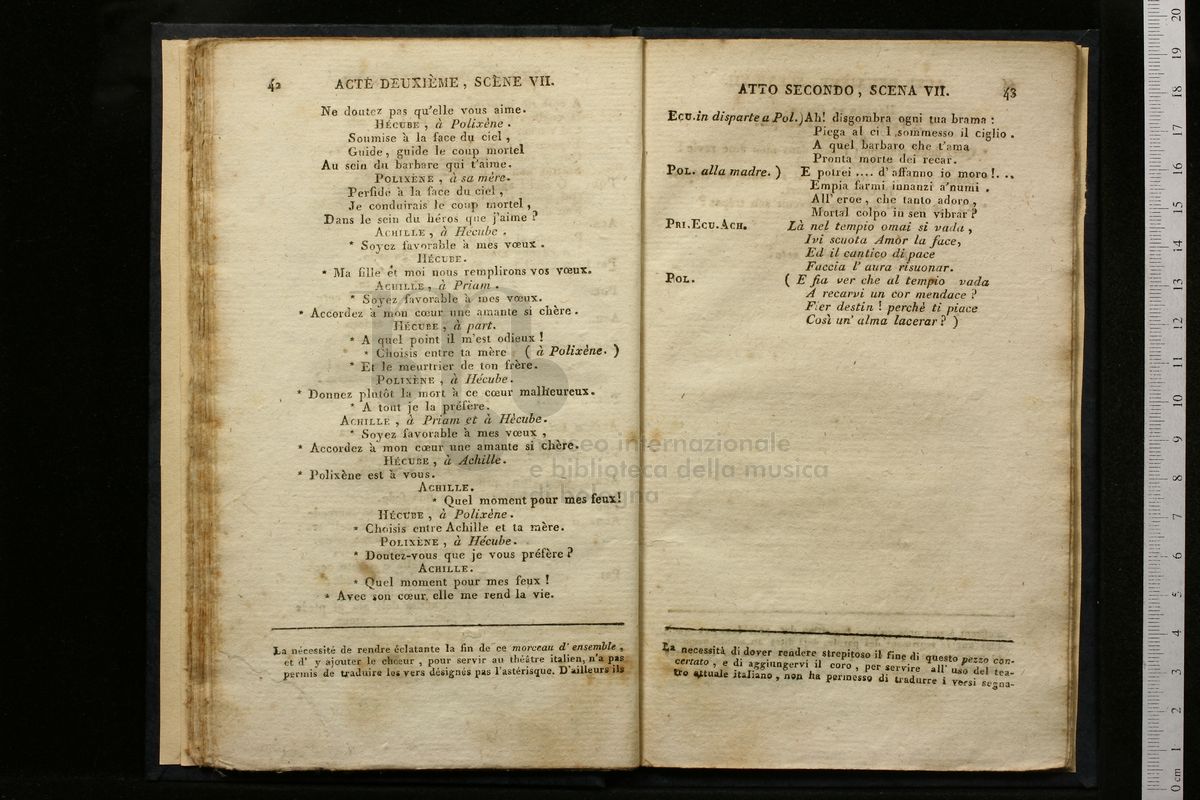 42 ACTE DEUXIÈME, SCÈNE VII.
Ne doutez pas qu'elle vous aime.
HÉCUBE, à Polixène.
Soumise à la face du ciel,
Guide, guide le coup mortel
Au sein du barbare qui t'aime.
POLIXÈNE, à sa mère.
Perfide à la face du ciel,
Je conduirais le coup mortel,
Dans le sein du héros que j'aime ?
ACHILLE, à Hécube.
* Soyez favorable à mes vœux.
HÉCUBE.
* Ma fille et moi nous remplirons vos vœux.
ACHILLE, à Priam.
* Soyez favorable à mes vœux.
* Accordez à mon cœur une amante si chère.
HÉCUBE, à part.
* A quel point il m'est odieux !
* Choisis entre ta mère ( à Polixène. )
* Et le meurtrier de ton frère.
POLIXÈNE, à Hécube.
* Donnez plutôt la mort à ce cœur malheureux.
* A tout je la préfère.
ACHILLE, à Priam et à Hècube.
* Soyez favorable à mes vœux,
* Accordez à mon cœur une amante si chère.
HÉCUBE, à Achille.
* Polixène est à vous.
ACHILLE.
* Quel moment pour mes feux!
HÉCUBE, à Polixène.
* Choisis entre Achille et ta mère.
POLIXÈNE, à Hécube.
* Doutez-vous que je vous préfère ?
ACHILLE.
* Quel moment pour mes feux !
* Avec son cœur, elle me rend la vie.
La nécessité de rendre éclatante la fin de ce morceau d'ensemble,
et d' y ajouter le chœur, pour servir au théâtre italien, n'a pas
permis de traduire les vers désignés pas l'astérisque. D'ailleurs ils
ATTO SECONDO, SCENA VII. 43
ECU. in disparte a Pol.) Ah! disgombra ogni tua brama :
Piega al ci l sommesso il ciglio.
A quel barbaro che t'ama
Pronta morte dei recar.
POL. alla madre. ) E potrei .... d'affanno io moro !...
Empia farmi innanzi a'numi.
All' eroe, che tanto adoro,
Mortal colpo in sen vibrar ?
PRI. ECU. ACH. Là nel tempio omai si vada,
Ivi scuota Amòr la face,
Ed il cantico di pace
Faccia l' aura risuonar.
POL. ( E fia ver che al tempio vada
A recarvi un cor mendace ?
Fier destin ! perchè ti piace
Così un' alma lacerar ? )
La necessità di dover rendere strepitoso il fine di questo pezzo con-
certato, e di aggiungervi il coro, per servire all' uso del tea-
tro attuale italiano, non ha permesso di tradurre i versi segna-
museo internazionale
e biblioteca della musica
di bologna
0 cm 1 2 3 4 5 6 7 8 9 10 11 12 13 14 15 16 17 18 19 20